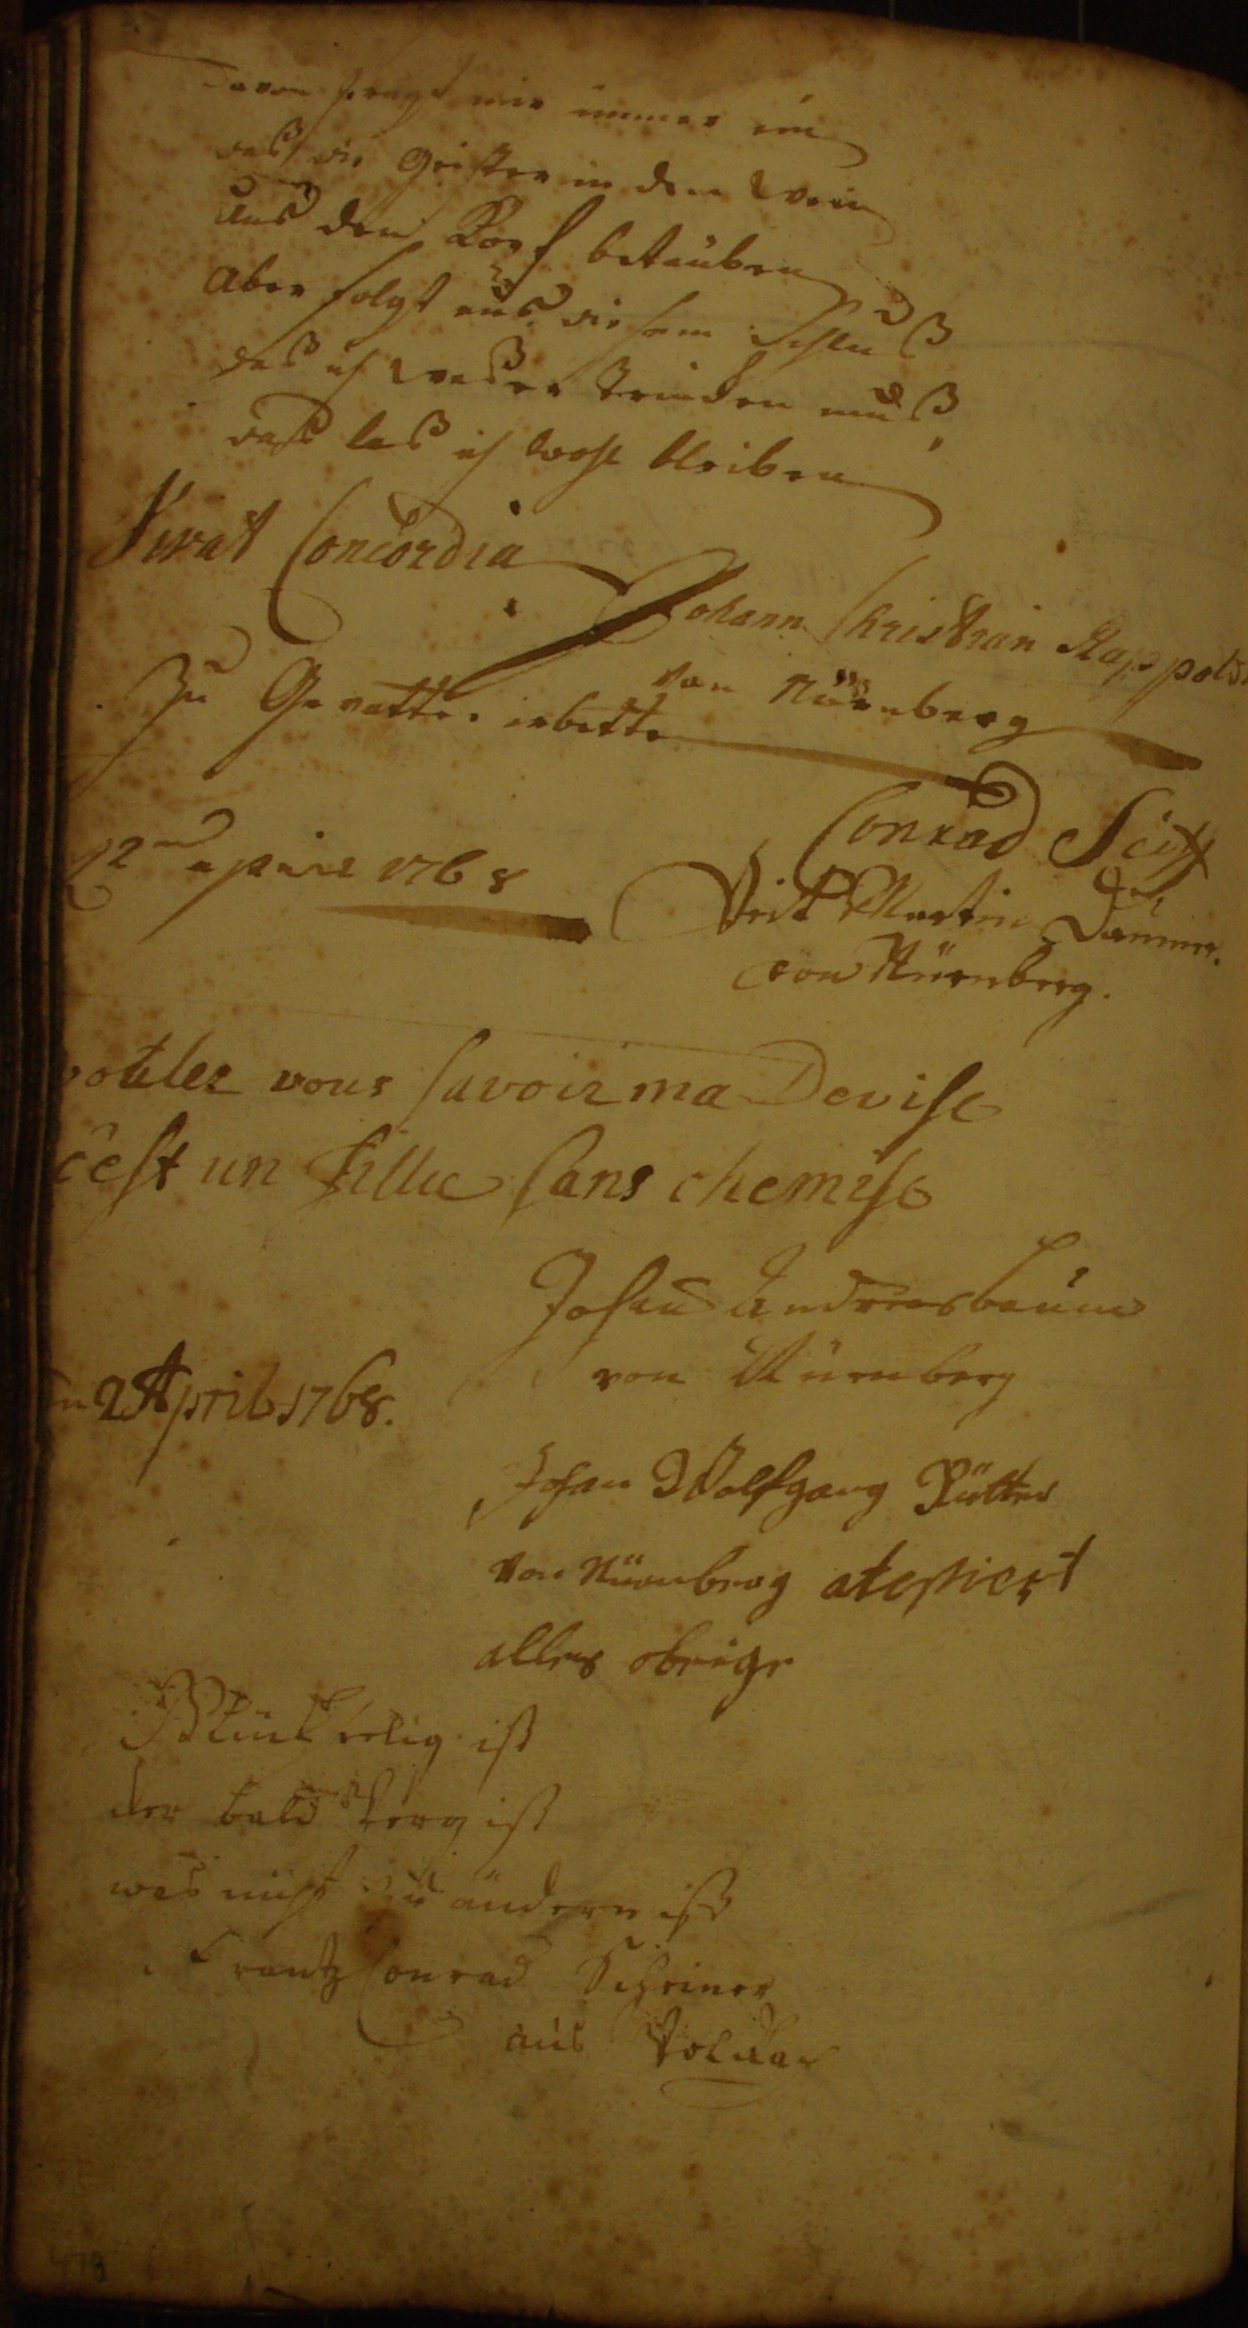 immer ein
das die Geister in dem Wein
uns den Kopf betäuben
aber folgt aus diesem Schluß
das ich waßer trincken muß,
daß las ich wohl bleiben
Vivat Concordia
Johann Christian Rappold
von Nürnberg
Zu Gevatter erbitte
Conrad
12 apiril 1768
Veit Martin
von Nürnberg.
voulez vous savoir ma Devise
c'est un fille sans chemise
Johan Andreas baum
von Nürnberg
2 April 1768.
Johan Wolfgang Rütter
von Nürnberg atestiert
alles obrige
Glückselig ist
der bald
was nicht zu ändern ist
Frantz Conrad Scheiner
aus